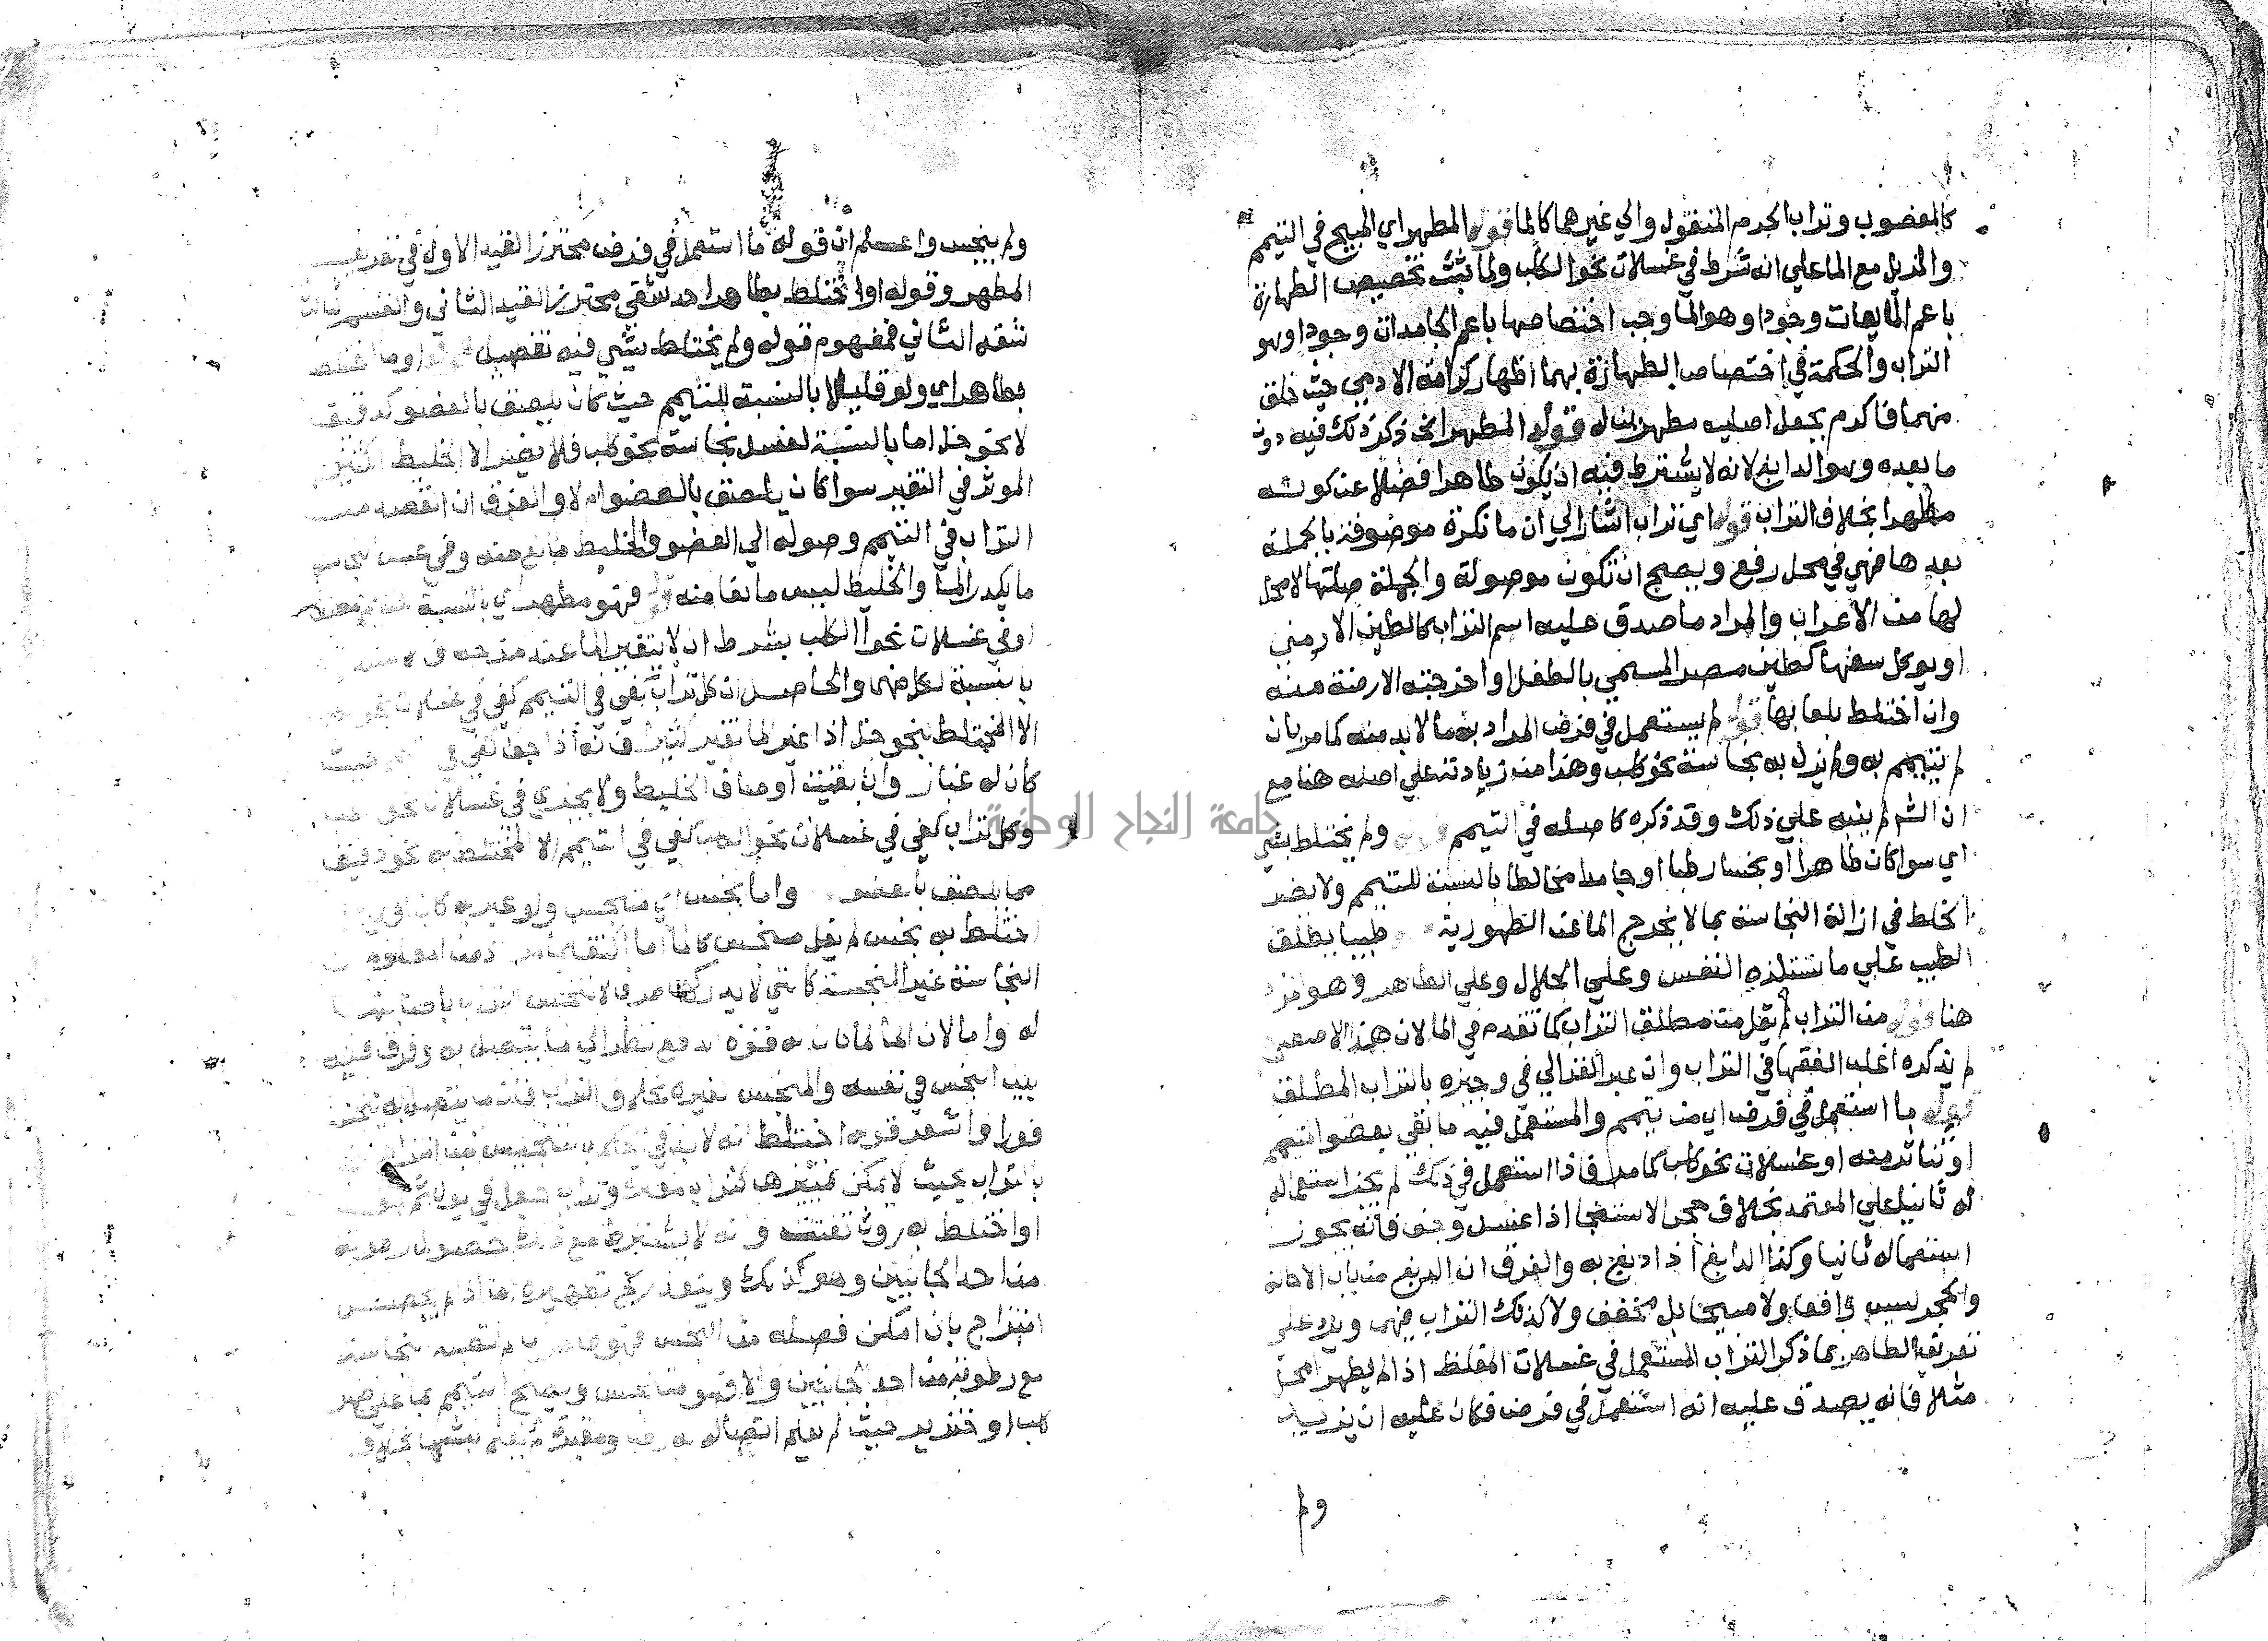 كالمغصوب وتراب الحرم المنقول والي غيرهما كالما قوله المطهر اي المبيح في التيمم
والمزيل مع الما علي انه شرط في غسلات نحو الكلب ولما ثبت تخصيص الطهارة
باعم المايعات وجودا وهو الما وجب اختصاصها باعم الجامدات وجودا وهو
التراب والحكمة في اختصاص الطهارة بهما اظهار كرامة الادمي حيث خلق
منهما فاكرم بجعل اصليه مطهرين له قوله المطهر انما ذكر ذلك فيه دون
ما بعده وهو الدابغ لانه لا يشترط فيه ان يكون طاهرا فضلا عن كونه
مطهرا بخلاف التراب قوله اي تراب اشار الي ان ما نكرة موصوفة بالجملة
بعدها فهي في محل رفع ويصح ان تكون موصولة والجملة صلتها لا محل
لها من الاعراب والمراد ما صدق عليه اسم التراب كالطين الارمني
او يوكل سفها كطين مصر المسمي بالطفل او اخرجته الارضة منه
وان اختلط بلعابها قوله لم يستعمل في فرض المراد به ما لا بد منه كما مر بان
لم تتيمم به ولم يزل به نجاسة نحو كلب وهذا من زيادته علي اصله هنا مع
ان الشم لم ينبه علي ذلك وقد ذكره كاصله في التيمم قوله ولم يختلط بشي
اي سوا كان طاهرا او نجسا رطبا او جامدا مخالطا بالنسبة للتيمم ولا يضر
الخلط في ازالة النجاسة بما لا يخرج الما عن الطهورية طيبا يطلق
الطيب علي ما تستلذه النفس وعلي الحلال وعلي الطاهر وهو المراد
هنا قوله من التراب لم يقل من مطلق التراب كما تقدم في الما لان هذا الاسم
لم يذكره اغلب الفقها في التراب وان عبر الغزالي في وجيزه بالتراب المطلق
قوله ما استعمل في فرض اي من تيمم والمستعمل فيه ما بقي بعضو التيمم
او تناثر منه او غسلات نحو كلب كما مر فاذا استعمل في ذلك لم يجز استعماله
له ثانيا علي المعتمد بخلاف حجر الاستنجا اذا غسل وجف فانه يجوز
استعماله ثانيا وكذا الدابغ اذا دبغ به والفرق ان الدبغ من باب الاحالة
والحجر ليس رافعا ولا مبيحا بل مخفف ولا كذلك التراب فيهما ويرد علي
تعريف الطاهر بما ذكر التراب المستعمل في غسلات المغلظ اذا لم يطهر المحل
مثلا فانه يصدق عليه انه استعمل في فرض فكان عليه ان يزيد
ولم
ولم ينجس واعلم ان قوله ما استعمل في فرض محترز القيد الاول في تعريف
المطهر وقوله او اختلط بطاهر احد شقي محترز القيد الثاني والقسم الثالث
شقه الثاني فمفهوم قوله ولم يختلط بشي فيه تفصيل قوله او ما اختلط
بطاهر اي ولو قليلا بالنسبة للتيمم حيث كان يلصق بالعضو كدقيق
لا نحو خل اما بالنسبة لغسل نجاسة نحو كلب فلا يضر الا الخليط الكثير
الموثر في التغير سوا كان يلصق بالعضو ام لا والفرق ان القصد من
التراب في التيمم وصوله الي العضو والخليط مانع منه وفي غسل النجاسة
ما يكدر الما والخليط ليس مانعا منه قوله فهو مطهر اي بالنسبة
او في غسلات نحو الكلب بشرط ان لا يتغير الما عند مزجه
بالنسبة لكل منهما والحاصل ان كل تراب كفي في التيمم كفي في غسلات نحو
الا المختلط بنحو خل اذا غير الما تغير كثيرا فانه اذا جف كفي في
كان له غبار وان بقيت اوصاف الخليط ولا يجزي في غسلات نحو كلب
وكل تراب كفي في غسلات نحو الكلب كفي في التيمم الا المختلط به نحو دقيق
مما يلصق بالعضو واما نجس اي متنجس ولو عبر به كان اولي
اختلط به نجس لم يقل متنجس كالما
النجاسة غير النجسة لا
له واما لان الما لما كان له قوة الدفع نظر الي ما يتصل به وفرق فيه
بين النجس في نفسه والمتنجس بغيره بخلاف التراب فان ما يتصل به ينجس
فورا واشعر قوله اختلط انه لا بد في الحكم بتنجيس
بالتراب بحيث لا يمكن تمييزها كتراب مقبرة وتراب جعل في بول
او اختلط به روث تفتت وانه لا يشترط مع ذلك حصول رطوبة
من احد الجانبين وهو كذلك ويتعذر تطهيره اما اذا لم يحصل
امتزاج بان امكن فصله من النجس فهو طاهر ما لم تصبه نجاسة
مع رطوبة من احد الجانبين والا فهو متنجس ويصح التيمم بما علي ظهر
كلب او خنزير حيث لم يعلم اتصاله به رطبا ومقبرة لم يعلم نبشها بخلاف
جامعة النجاح الوطنية